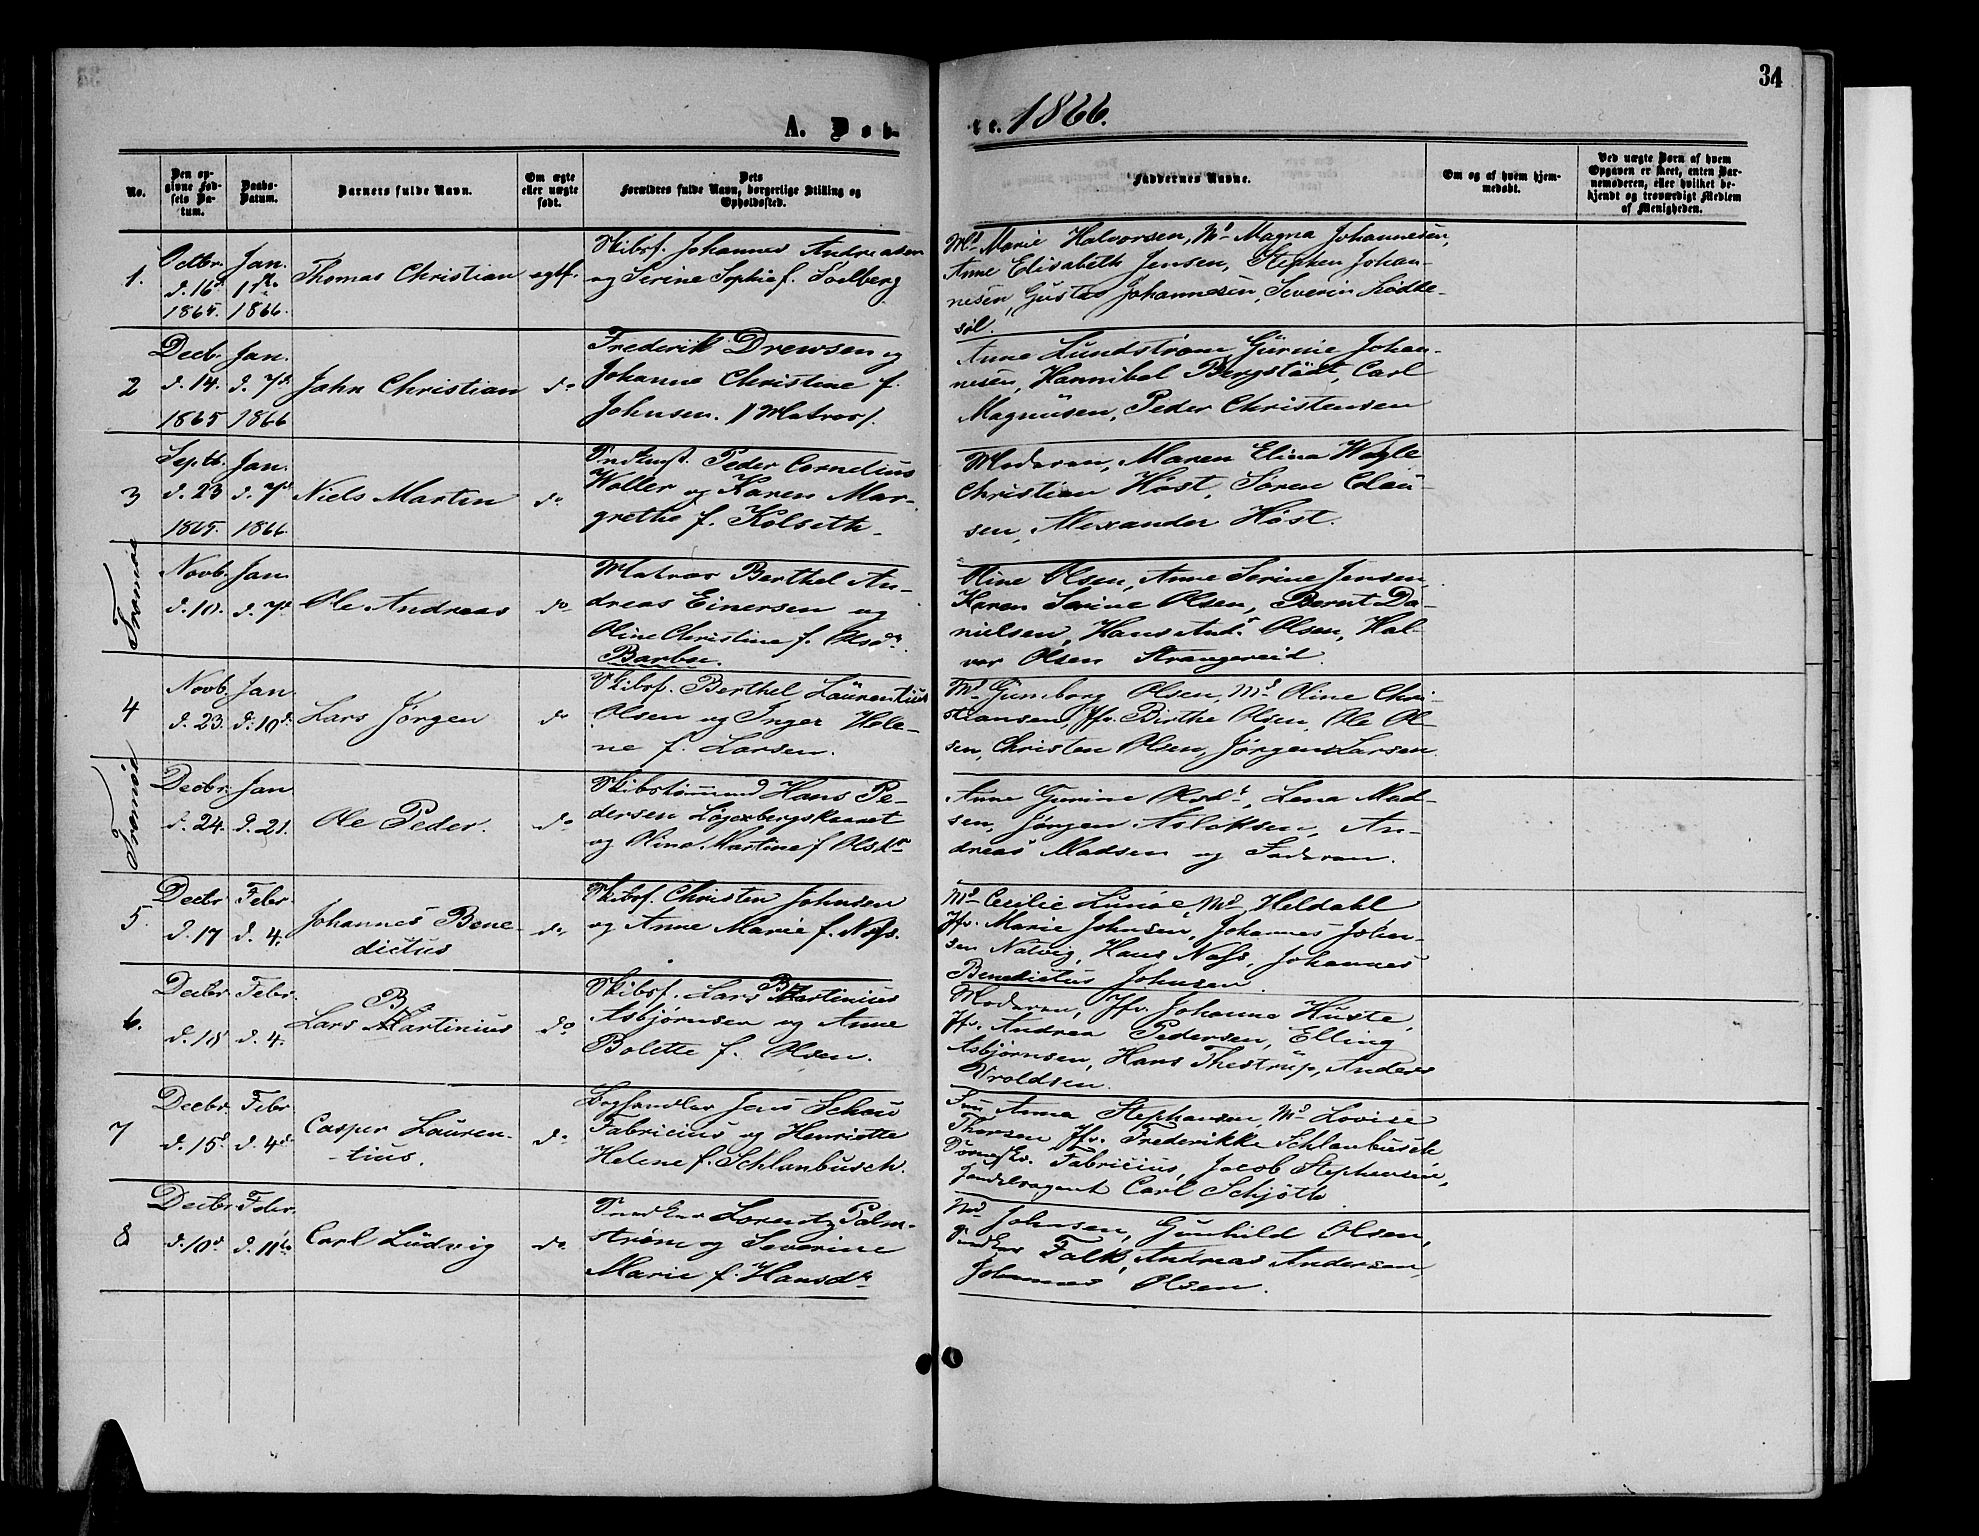 34
A. Døb-
te. 1866.
No.
Den op-
givne Fød-
sels Da-
tum.
Daabs-
Datum.
Barnets fulde Navn.
Om ægte
eller uægte
født.
Dets
Forældres fulde Navn, borgerlige Stilling og
Opholdssted.
Faddernes Navne.
Om og af hvem hjem-
medøbt.
Ved uægte Børn af hvem
Opgaven er skeet, enten Bar-
nemoderen, eller hvilket be-
kjendt og troværdigt Medlem
af Menigheden.
1.
Octbr. d. 16d 1865.
Jan. 1ste 1866.
Thomas Christian
egtf.
Skibsf. Johannes Andreasen
og Serine Sophie f. Soelberg
Md Marie Halvorsen, Md Magna Johannesen,
Anne Elisabeth Jensen, Stephen Johan-
nesen, Gustav Johannesen, Severin Lødde-
søl.
2
Decb. d. 14. 1865
Jan. d. 7d. 1866
John Christian
do
Frederik Drewsen og
Johanne Christine f.
Johnsen. // Matros/.
Anne Lundstrøm Gurine Johan-
nesen, Hannibal Bergstädt, Carl
Magnusen, Peder Christensen
3
Septb. d. 23 1865.
Jan. d. 7d 1866
Niels Martin
do.
Peder Cornelius
Woller og Karen Mar-
grethe f. Kolseth.
Moderen, Maren Elina Wagle
Christian Høst, Søren Clau-
sen, Alexander Høst.
Tromøe
Novb. d. 10.
Jan. d. 7d
Ole Andreas
do
Matros Berthel An-
dreas Einersen og
Oline Christine f. Olsdr.
Barbu.
Oline Olsen, Anne Serine Jensen,
Karen Serine Olsen, Bernt Da-
nielsen, Hans Ant. Olsen, Hal-
vor Olsen Strangereid.
4
Novb. d. 23.
Jan d. 10d.
Lars Jørgen
do
Skibsf. Berthel Laurentius
Olsen og Inger Hele-
ne f. Larsen.
Md Gunborg Olsen, Md Oline Chri-
stiansen, Jfr. Birthe Olsen, Ole Ol-
sen, Christen Olsen, Jørgen Larsen.
Tromøe
Decbr. d. 24.
Jan d. 21.
Ole Peder.
do
Skibstømmrmd Hans Pe-
dersen
og Oline Martine f Olsdr
Anne Gurine Olsdr, Lena Mad-
sen, Jørgen Aslaksen, An-
dreas Madsen og Faderen.
5.
Decbr d. 17
Febr d. 4.
Johannes Bene-
dictus
do
Skibsf. Christen Johnsen
og Anne Marie f. Næss.
Md Cecilie Lunøe Md Heldahl
Jfr. Marie Johnsen, Johannes John-
sen Natvig, Hans Næss, Johannes
Benedictus Johnsen.
6.
Decbr d. 18
Febr. d. 4.
Lars Bartinius
do
Skibsf. Lars Bartinius
Asbjørnsen og Anne
Bolette f. Olsen.
Moderen, Jfr. Johanne Huste,
Jfr. Andrea Pedersen, Elling
Asbjørnsen, Hans Thestrup, Anders
Vroldsen.
7
Decbr. d. 15d
Febr d. 4d
Casper Lauren-
tius.
do
Boghandler Jens Schou
Fabricius og Henriette
Helene f. Schlanbusch.
Fru Anna Stephansen Md Lovise
Thorsen Jfr. Frederikke Schlanbusch
Fabricius, Jacob Stephansen,
Handelsagent Carl Schjøtt
8
Decbr d. 10d
Febr. d. 11te
Carl Ludvig
do
Snedker Lorentz Palm-
strøm og Severine
Marie f. Hansdr
Md Johnsen, Gunhild Olsen,
Snedker Falk, Andreas Andersen,
Johannes Olsen.